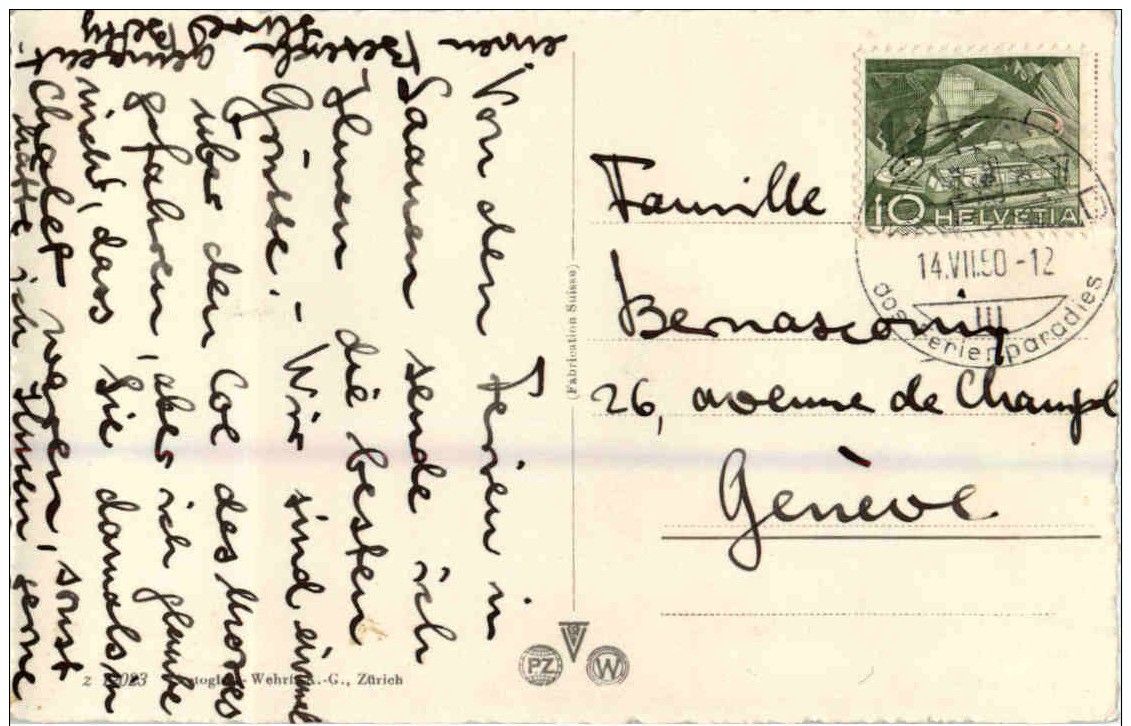 Von den Ferien in
Saanen sende ich
Ihnen die besten
Grüsse. - Wir sind einmal
über den Col des Mosses
gefahren, aber ich glaube
nicht, dass Sie damals im
Chalet waren, sonst
hätte ich Ihnen gerne
einen Besuch gemacht.
Ihre Betty
Famille
Bernasconi
26, avenue de Champel
Genève
10 HELVETIA
14.VII.50 -12
das Ferienparadies
(Fabrication Suisse)
PZ W
Wehrli A.-G., Zürich